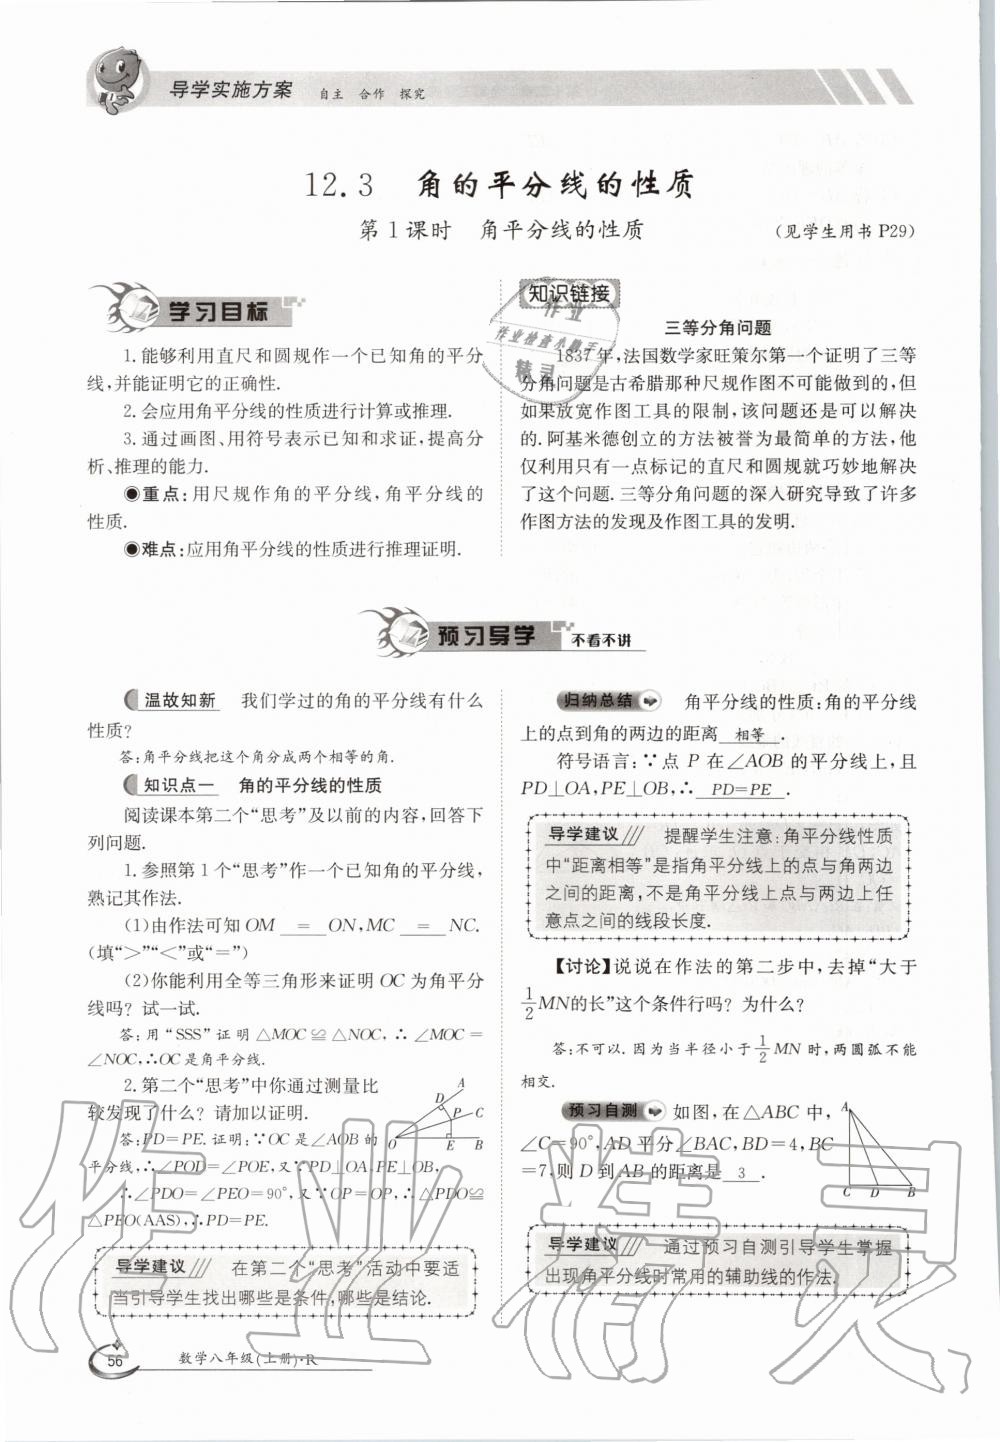 导学实施方案 自主 合作 探究
12.3 角的平分线的性质
第1课时 角平分线的性质 (见学生用书P29)
学习目标
1.能够利用直尺和圆规作一个已知角的平分
线,并能证明它的正确性.
2.会应用角平分线的性质进行计算或推理.
3.通过画图、用符号表示已知和求证,提高分
析、推理的能力.
●重点:用尺规作角的平分线,角平分线的
性质.
●难点:应用角平分线的性质进行推理证明.
知识链接
三等分角问题
1837年,法国数学家旺策尔第一个证明了三等
分角问题是古希腊那种尺规作图不可能做到的,但
如果放宽作图工具的限制,该问题还是可以解决
的.阿基米德创立的方法被誉为最简单的方法,他
仅利用只有一点标记的直尺和圆规就巧妙地解决
了这个问题.三等分角问题的深入研究导致了许多
作图方法的发现及作图工具的发明.
作业
作业检查小助手
精灵
预习导学 不看不讲
温故知新 我们学过的角的平分线有什么
性质?
答:角平分线把这个角分成两个相等的角.
知识点一 角的平分线的性质
阅读课本第二个“思考”及以前的内容,回答下
列问题.
1.参照第1个“思考”作一个已知角的平分线,
熟记其作法.
(1)由作法可知OM = ON,MC = NC.
(填“>”“<”或“=”)
(2)你能利用全等三角形来证明OC为角平分
线吗? 试一试.
答:用“SSS”证明△MOC≌△NOC,∴∠MOC=
∠NOC,∴OC是角平分线.
2.第二个“思考”中你通过测量比
较发现了什么? 请加以证明.
答:PD=PE.证明:∵OC是∠AOB的
平分线,∴∠POD=∠POE,又∵PD⊥OA,PE⊥OB,
∴∠PDO=∠PEO=90°,又∵OP=OP,∴△PDO≌
△PEO(AAS),∴PD=PE.
A
D
P
C
O
E
B
导学建议 在第二个“思考”活动中要适
当引导学生找出哪些是条件,哪些是结论.
归纳总结 角平分线的性质:角的平分线
上的点到角的两边的距离 相等 .
符号语言:∵点P在∠AOB的平分线上,且
PD⊥OA,PE⊥OB,∴ PD=PE .
导学建议 提醒学生注意:角平分线性质
中“距离相等”是指角平分线上的点与角两边
之间的距离,不是角平分线上点与两边上任
意点之间的线段长度.
【讨论】说说在作法的第二步中,去掉“大于
1/2MN的长”这个条件行吗? 为什么?
答:不可以.因为当半径小于1/2MN时,两圆弧不能
相交.
预习自测 如图,在△ABC中,
∠C=90°,AD平分∠BAC,BD=4,BC
=7,则D到AB的距离是 3 .
A
C
D
B
导学建议 通过预习自测引导学生掌握
出现角平分线时常用的辅助线的作法.
56 数学八年级(上册)·R
作业精灵